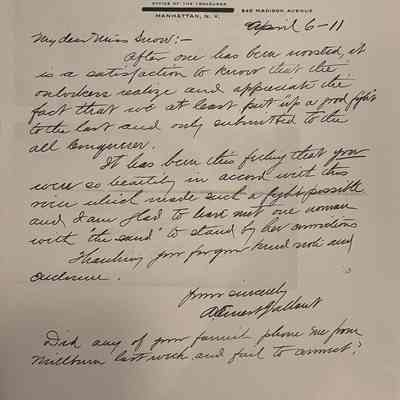 OFFICE OF THE TREASURER
MANHATTAN, N. Y.
540 MADISON AVENUE
April 6-11
My dear Miss Snow:-
After one has been worsted, it
is a satisfaction to know that the
onlookers realize and appreciate the
fact that we at least put up a good fight
to the last and only submitted to the
all Conqueror.
It has been this feeling that you
were so heartily in accord with this
move which made such a fight possible
and I am glad to have met one woman
with "the sand" to stand by her convictions
Thanking you for your kind note and
enclosure.
Yours sincerely
Did any of your family phone me from
Millburn last week and fail to connect?